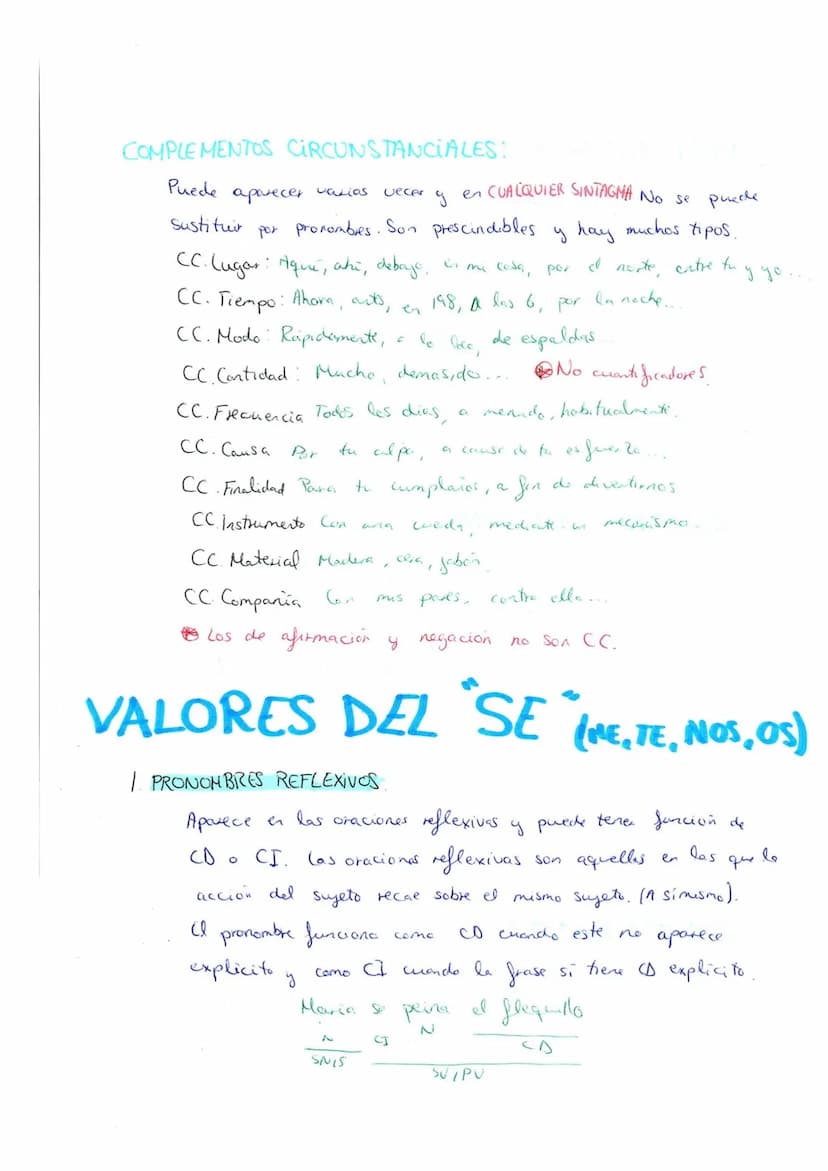 COMPLEMENTOS CIRCUNSTANCIALES:
Puede aparecer varias vecer y en CUALQUIER SINTAGMA No se puede
sustituir por pronombres. Son prescindibles y hay muchos tipos.
CC. Lugar: Aquí, ahí, debajo, en mi casa, por el norte, entre tu y yo...
CC. Tiempo: Ahora, ants, en 198, A las 6, por la noche...
CC. Modo: Rápidamente, a lo loco, de espaldas...
CC. Cantidad: Mucho, demasido... No cuantificadores.
CC. Frecuencia Todos los días, a menudo, habitualmente.
CC. Causa Por tu culpa, a causa de tu esfuerzo...
CC. Finalidad Para tu cumplaños, a fin de divertirnos
CC. Instrumento Con una cuerda, mediante un mecanismo.
CC. Material Madera, cera, jabón.
CC. Compañía Con mis padres, contra ella...
Los de afirmación y negación no son CC.
VALORES DEL "SE" (ME, TE, NOS, OS)
1 PRONOMBRES REFLEXIVOS.
Aparece en las oraciones reflexivas y puede tener función de
CD o CI. Las oraciones reflexivas son aquellas en las que la
acción del sujeto recae sobre el mismo sujeto. (A sí mismo).
El pronombre funciona como CD cuando este no aparece
explícito y como CI cuando la frase sí tiene CD explícito.
María se peina el flequillo
N CI N CD
SN/S
SV/PV